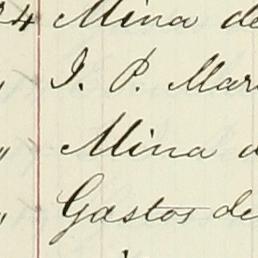 24 Mina de
" J. P. Mar
" Mina d
" Gastos de